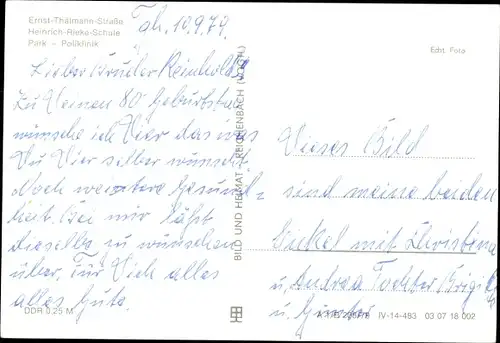 Ernst-Thälmann-Straße
Heinrich-Rieke-Schule
Park - Poliklinik
10.9.79.
Echt Foto
Lieber Bruder Reinhold!
Zu Deinen 80 Geburtstag
wünsche ich Dir das was
Du Dir selber wünscht.
Noch weitere Gesund-
heit. Bei mir läßt
dieselbe zu wünschen
über. Für Dich alles
alles Gute.
BILD UND HEIMAT REICHENBACH (VOGTL)
Dieses Bild
sind meine beiden
Enkel mit Christina
u. Andrea Tochter Brigitte
u. Günter
DDR 0,25 M
IV-14-483 03 07 18 002